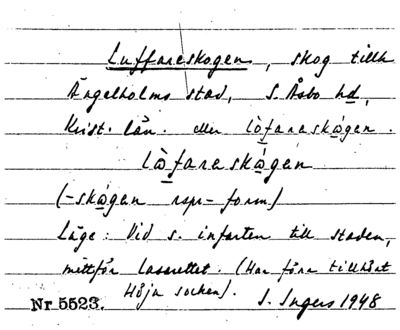 Luffareskogen, skog tillh
Ängelholms stad, S. Åsbo hd,
Krist. län. eller lòfaraskògan.
lòfaraskògan
(-skògan rspr-form)
Läge: Vid s. infarten till staden,
mittför lasarettet. (Har förr tillhört
Höja socken).
Nr 5523. S. Ingers 1948